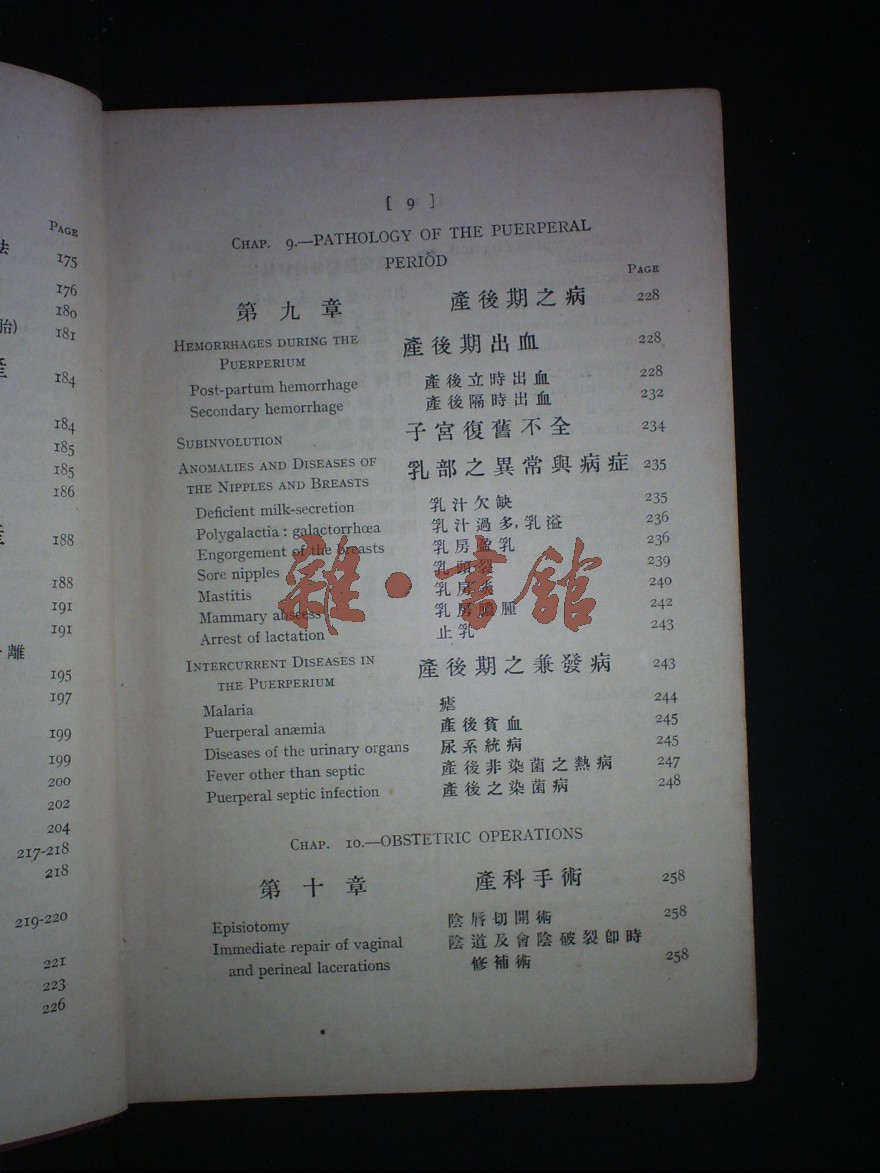 PAGE
法
175
176
180
胎)
181
184
184
185
185
186
188
188
191
191
離
195
197
199
199
200
202
204
217-218
218
219-220
221
223
226
[ 9 ]
CHAP. 9.—PATHOLOGY OF THE PUERPERAL
PERIOD
PAGE
第九章 產後期之病 228
HEMORRHAGES DURING THE 產後期出血 228
PUERPERIUM
Post-partum hemorrhage 產後立時出血 228
Secondary hemorrhage 產後隔時出血 232
SUBINVOLUTION 子宮復舊不全 234
ANOMALIES AND DISEASES OF 乳部之異常與病症 235
THE NIPPLES AND BREASTS
Deficient milk-secretion 乳汁欠缺 235
Polygalactia: galactorrhœa 乳汁過多,乳溢 236
Engorgement of the breasts 乳房盈乳 236
Sore nipples 乳頭裂 239
Mastitis 乳房炎 240
Mammary abscess 乳房膿腫 242
Arrest of lactation 止乳 243
INTERCURRENT DISEASES IN 產後期之兼發病 243
THE PUERPERIUM
Malaria 瘧 244
Puerperal anæmia 產後貧血 245
Diseases of the urinary organs 尿系統病 245
Fever other than septic 產後非染菌之熱病 247
Puerperal septic infection 產後之染菌病 248
CHAP. 10.—OBSTETRIC OPERATIONS
第十章 產科手術 258
Episiotomy 陰唇切開術 258
Immediate repair of vaginal 陰道及會陰破裂卽時
and perineal lacerations 修補術 258
雜·書館